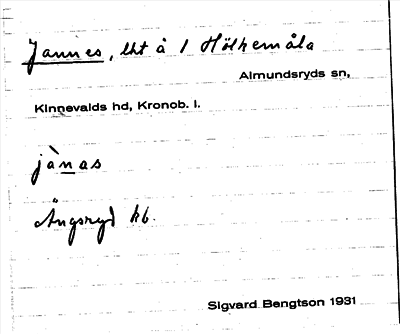 Jannes, lht å 1 Hölhemåla
Almundsryds sn,
Kinnevalds hd, Kronob. l.
jànas
Ängsryd kb.
Sigvard Bengtson 1931